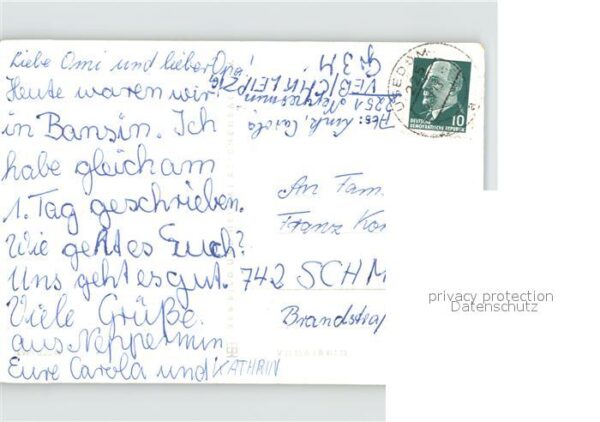 Liebe Omi und lieber Opa!
Heute waren wir
in Bansin. Ich
habe gleich am
1. Tag geschrieben.
Wie geht es Euch?
Uns geht es gut.
Viele Grüße
aus Neppermin
Eure Carola und KATHRIN
Abs: Link, Carola
2251 Neppermin
VEB/CHK LEIPZIG
USEDOM
DEUTSCHE
DEMOKRATISCHE REPUBLIK
10
An Fam.
Franz Kor
742 SCHM
Brandstra
privacy protection
Datenschutz